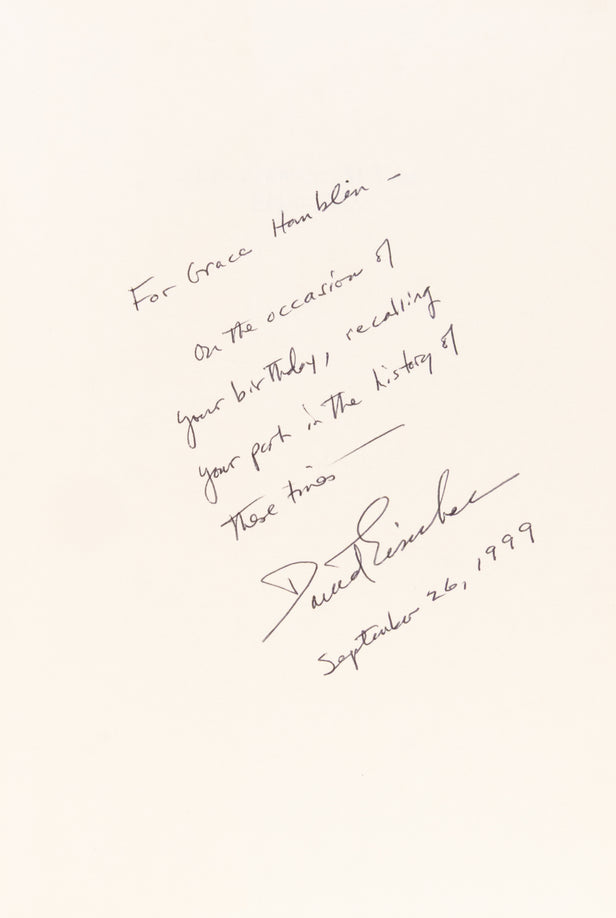 For Grace Hamblin —
On the occasion of
your birthday, recalling
your part in the history of
these times —
David Eisenhower
September 26, 1999